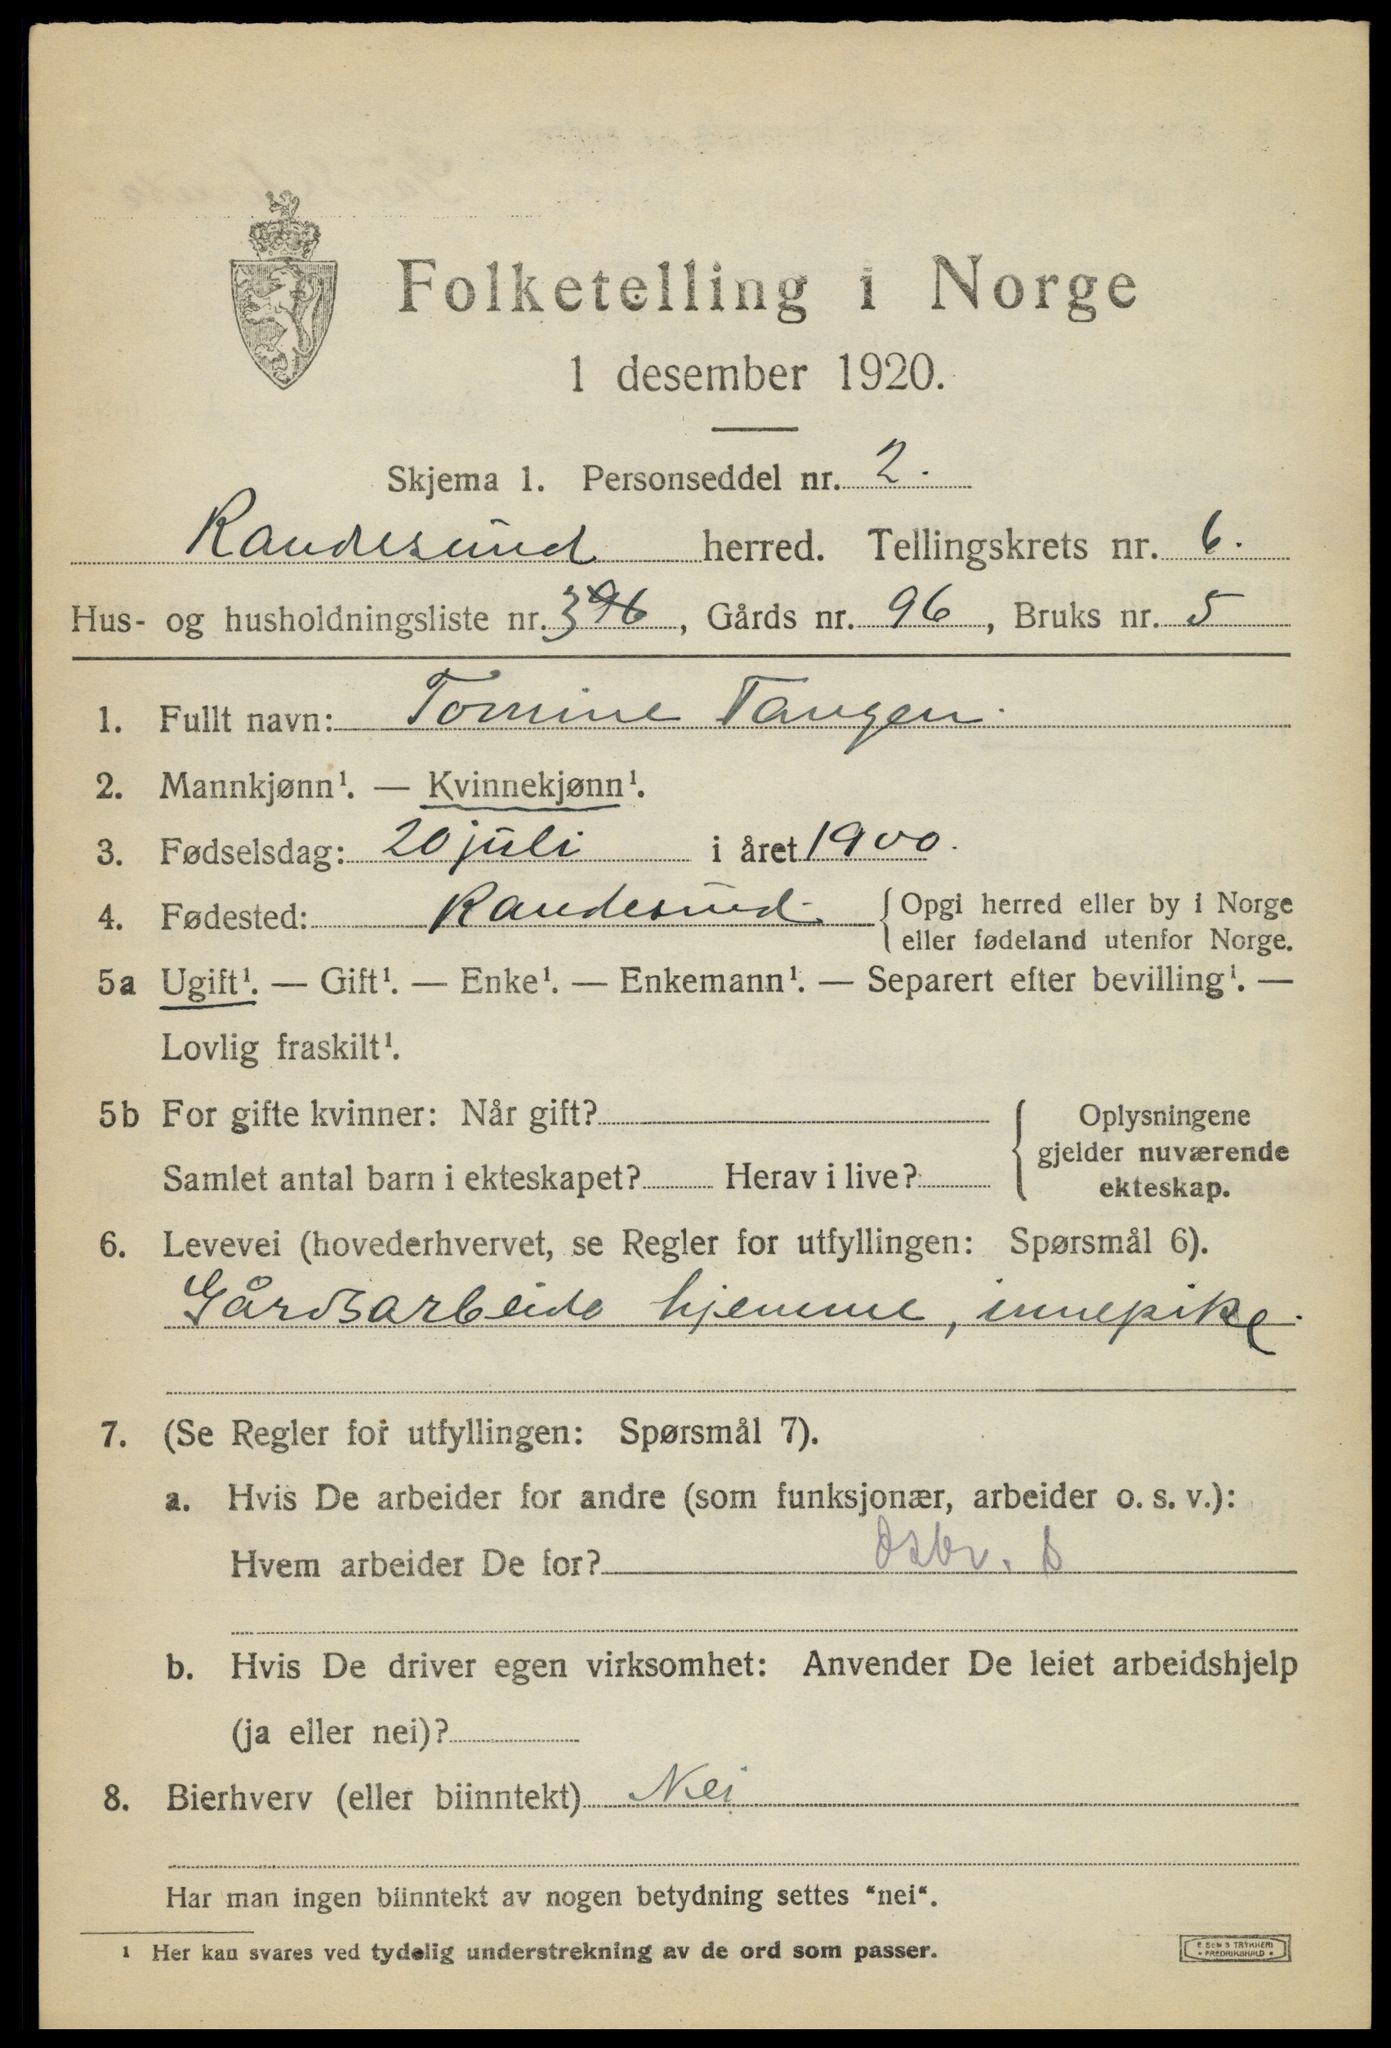 Folketelling i Norge
1 desember 1920.
Skjema 1. Personseddel nr. 2.
Randesund herred. Tellingskrets nr. 6.
Hus- og husholdningsliste nr. 396, Gårds nr. 96, Bruks nr. 5
1. Fullt navn: Tomine Tangen.
2. Mannkjønn¹. — Kvinnekjønn¹.
3. Fødselsdag: 20 juli i året 1900.
4. Fødested: Randesund. {Opgi herred eller by i Norge
eller fødeland utenfor Norge.
5a Ugift¹. — Gift¹. — Enke¹. — Enkemann¹. — Separert efter bevilling¹. —
Lovlig fraskilt¹.
5b For gifte kvinner: Når gift? { Oplysningene
gjelder nuværende
Samlet antal barn i ekteskapet? Herav i live?
ekteskap.
6. Levevei (hovederhvervet, se Regler for utfyllingen: Spørsmål 6).
Gårdsarbeide hjemme, innepike.
7. (Se Regler for utfyllingen: Spørsmål 7).
a. Hvis De arbeider for andre (som funksjonær, arbeider o. s. v.):
Hvem arbeider De for?
b. Hvis De driver egen virksomhet: Anvender De leiet arbeidshjelp
(ja eller nei)?
8. Bierhverv (eller biinntekt) Nei
Har man ingen biinntekt av nogen betydning settes "nei".
1 Her kan svares ved tydelig understrekning av de ord som passer.